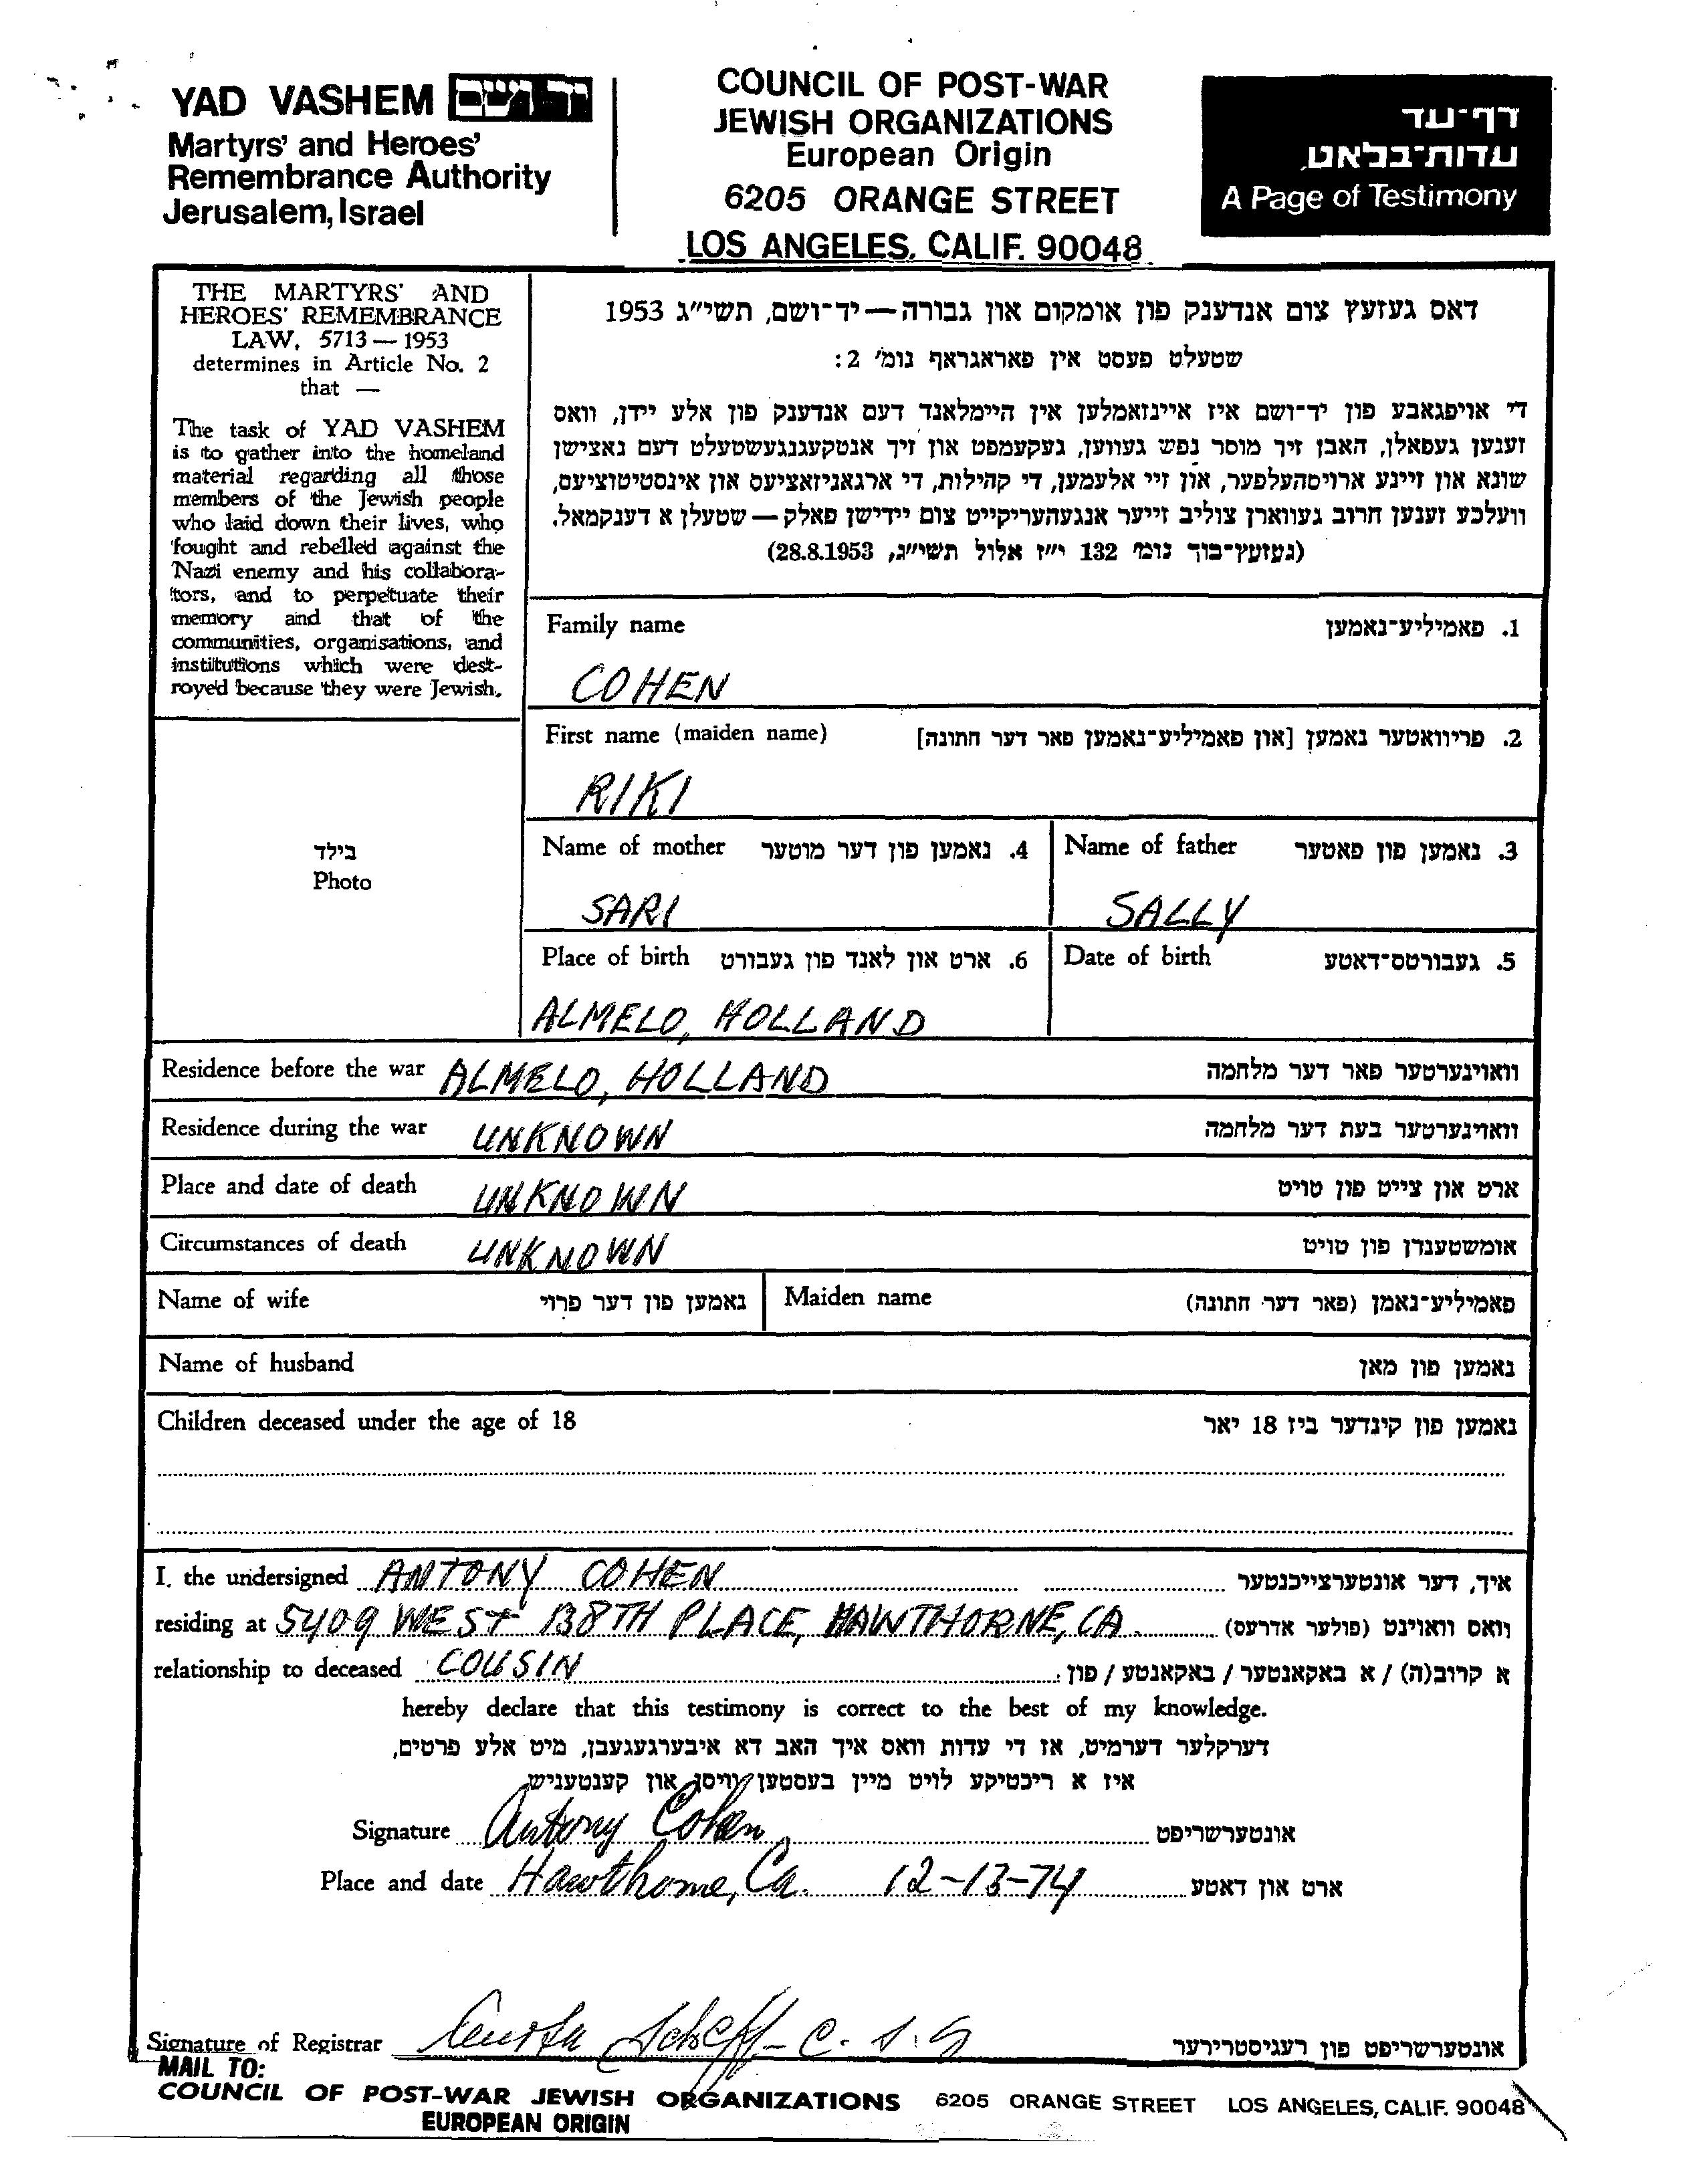 YAD VASHEM יד ושם
Martyrs' and Heroes'
Remembrance Authority
Jerusalem, Israel
COUNCIL OF POST-WAR
JEWISH ORGANIZATIONS
European Origin
6205 ORANGE STREET
LOS ANGELES, CALIF. 90048
דף-עד
עדות-בלאַט
A Page of Testimony
THE MARTYRS' AND
HEROES' REMEMBRANCE
LAW, 5713 — 1953
determines in Article No. 2
that —
The task of YAD VASHEM
is to gather into the homeland
material regarding all those
members of the Jewish people
who laid down their lives, who
fought and rebelled against the
Nazi enemy and his collabora-
tors, and to perpetuate their
memory and that of the
communities, organisations, and
institutions which were dest-
royed because they were Jewish.
דאס געזעץ צום אנדענק פון אומקום און גבורה — יד-ושם, תשי"ג 1953
שטעלט פעסט אין פאראגראף נומ' 2:
די אויפגאבע פון יד-ושם איז איינזאמלען אין היימלאנד דעם אנדענק פון אלע יידן, וואס
זענען געפאלן, האבן זיך מוסר נפש געווען, געקעמפט און זיך אנטקעגנגעשטעלט דעם נאצישן
שונא און זיינע ארויסהעלפער, און זיי אלעמען, די קהילות, די ארגאניזאציעס און אינסטיטוציעס,
וועלכע זענען חרוב געווארן צוליב זייער אנגעהעריקייט צום יידישן פאלק — שטעלן א דענקמאל.
(געזעץ-בוך נומ' 132 י"ז אלול תשי"ג, 28.8.1953)
Family name 1. פאמיליע-נאמען
COHEN
First name (maiden name) 2. פריוואטער נאמען [און פאמיליע-נאמען פאר דער חתונה]
RIKI
בילד
Photo
Name of mother 4. נאמען פון דער מוטער Name of father 3. נאמען פון פאטער
SARI SALLY
Place of birth 6. ארט און לאנד פון געבורט Date of birth 5. געבורטס-דאטע
ALMELO, HOLLAND
Residence before the war ALMELO, HOLLAND וואוינערטער פאר דער מלחמה
Residence during the war UNKNOWN וואוינערטער בעת דער מלחמה
Place and date of death UNKNOWN ארט און צייט פון טויט
Circumstances of death UNKNOWN אומשטענדן פון טויט
Name of wife נאמען פון דער פרוי Maiden name פאמיליע-נאמן (פאר דער חתונה)
Name of husband נאמען פון מאן
Children deceased under the age of 18 נאמען פון קינדער ביז 18 יאר
I, the undersigned ANTONY COHEN איך, דער אונטערצייכנטער
residing at 5409 WEST 138TH PLACE, HAWTHORNE, CA. וואס וואוינט (פולער אדרעס)
relationship to deceased COUSIN א קרוב(ה) / א באקאנטער / באקאנטע / פון:
hereby declare that this testimony is correct to the best of my knowledge.
דערקלער דערמיט, אז די עדות וואס איך האב דא איבערגעגעבן, מיט אלע פרטים,
איז א ריכטיקע לויט מיין בעסטען וויסן און קענטעניש.
Signature Antony Cohen אונטערשריפט
Place and date Hawthorne, Ca. 12-13-74 ארט און דאטע
Signature of Registrar אונטערשריפט פון רעגיסטרירער
MAIL TO:
COUNCIL OF POST-WAR JEWISH ORGANIZATIONS 6205 ORANGE STREET LOS ANGELES, CALIF. 90048
EUROPEAN ORIGIN